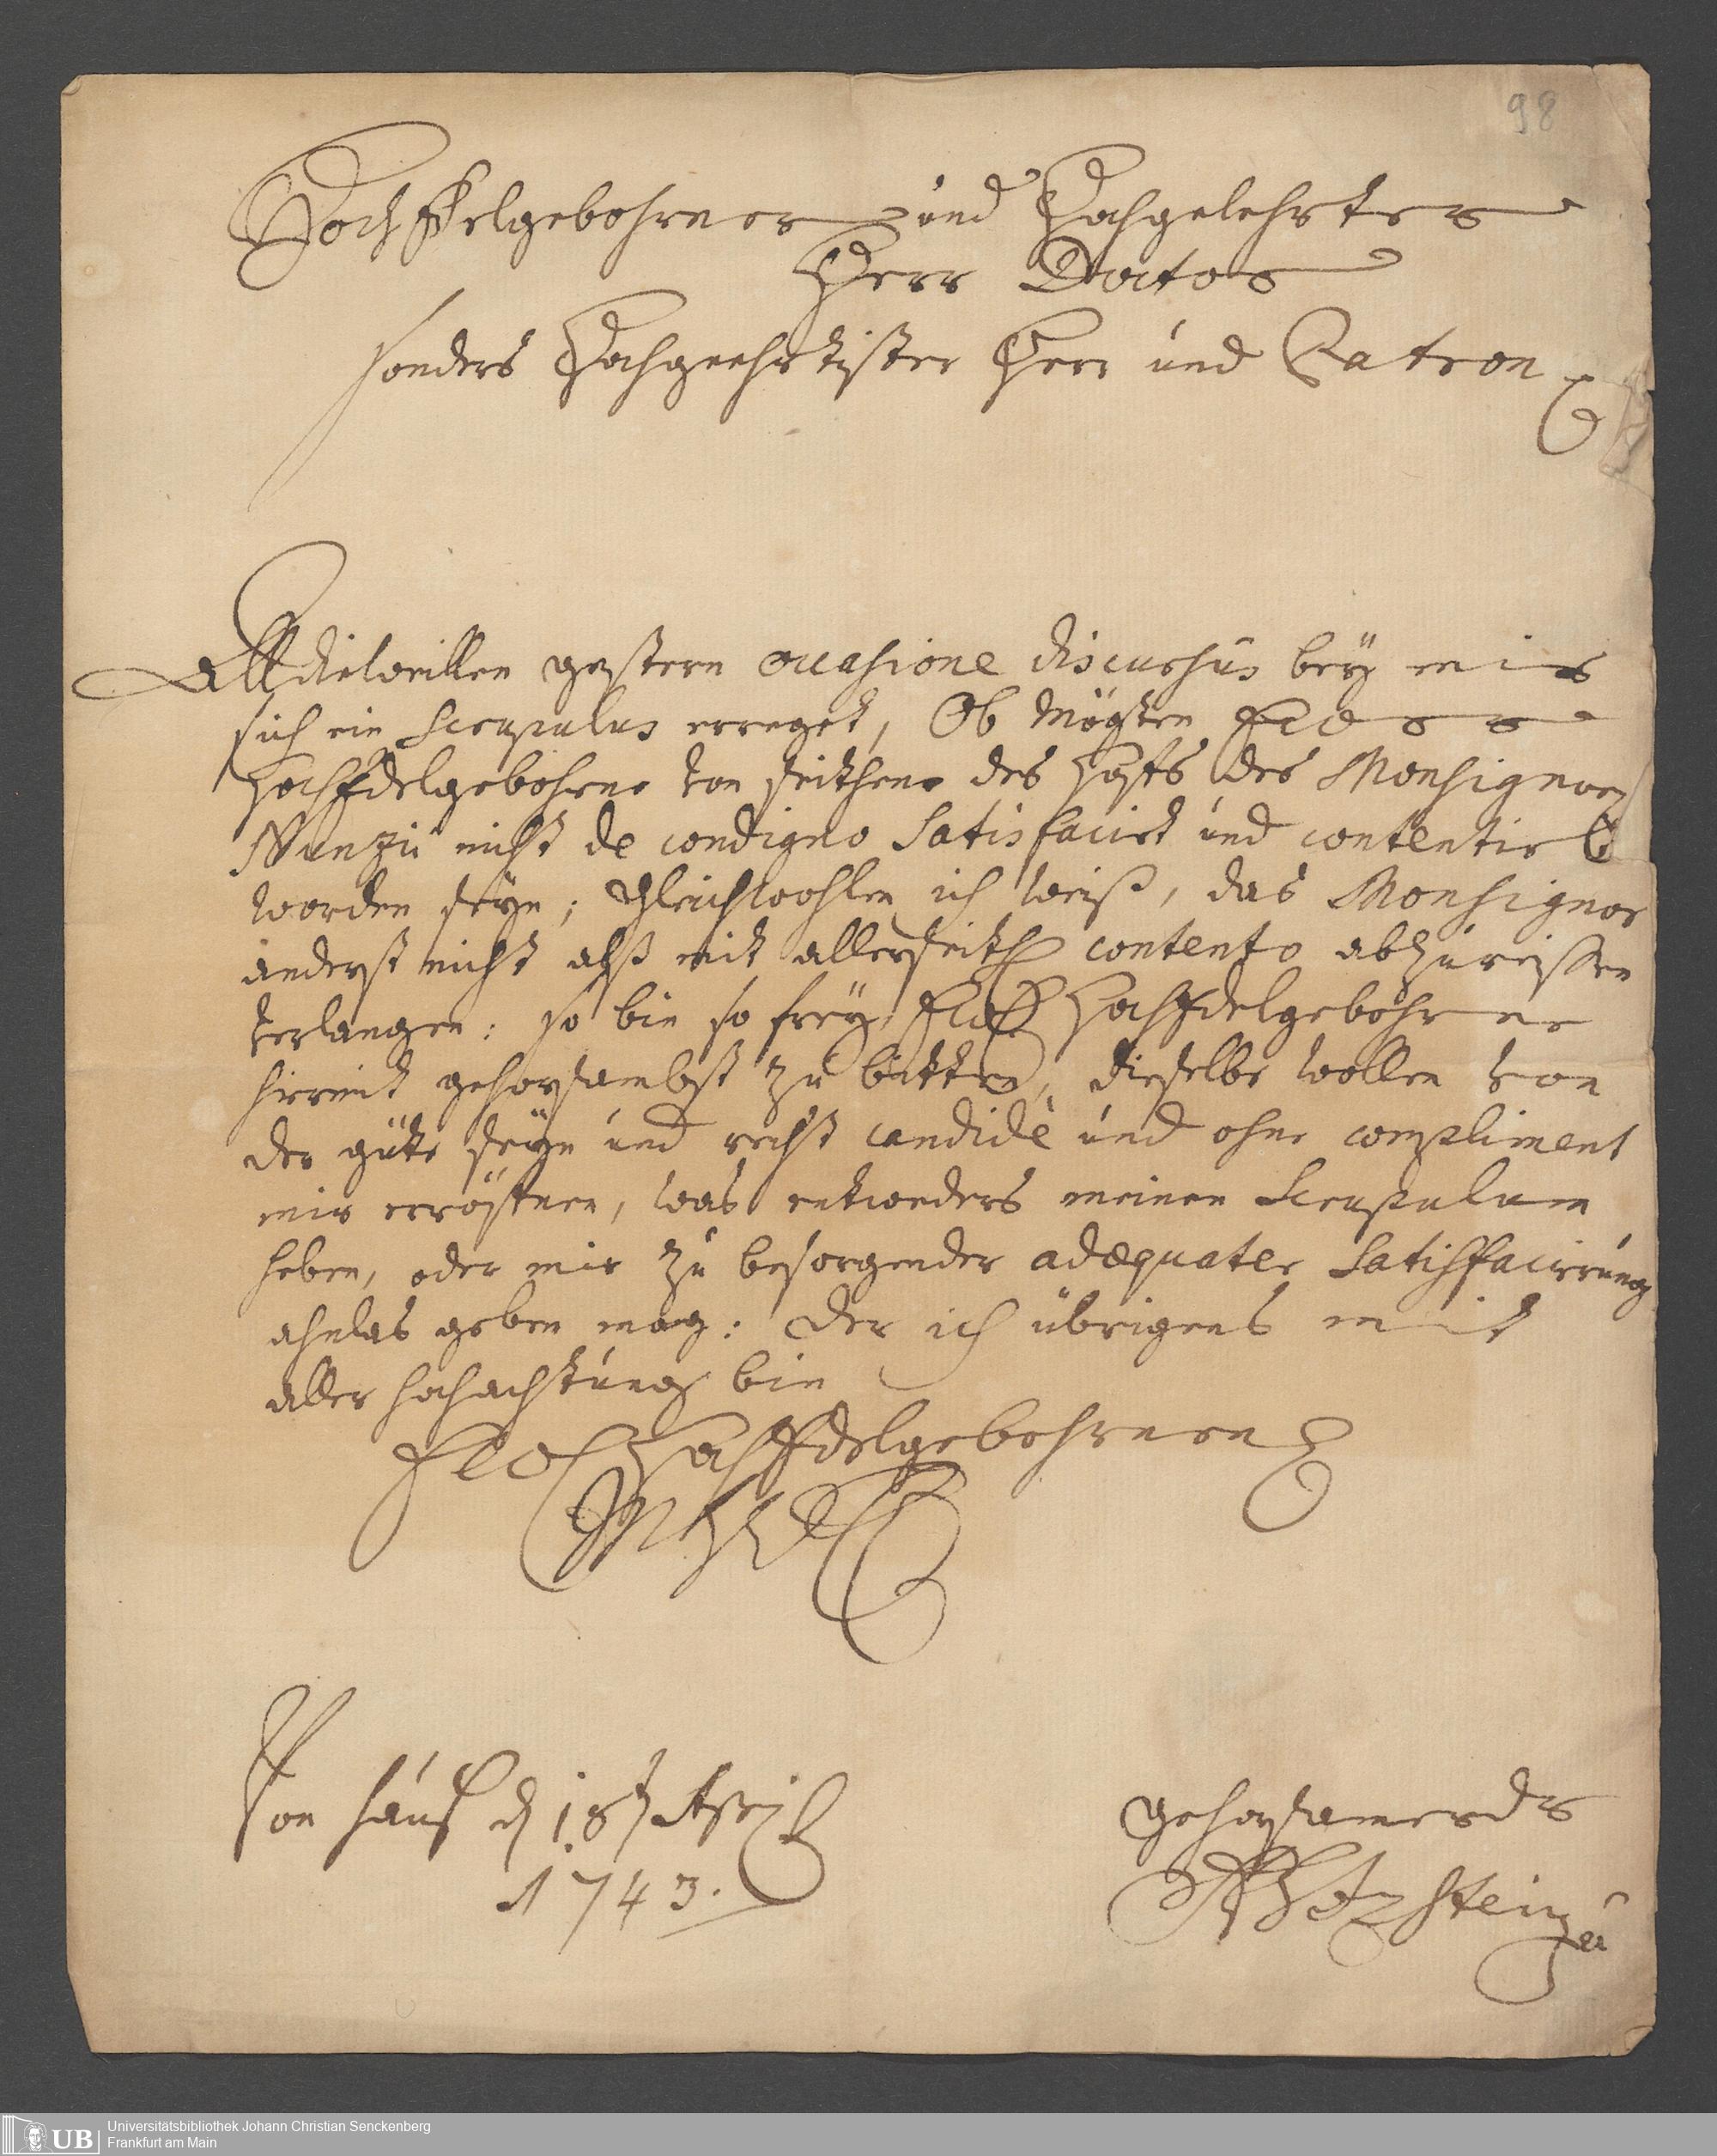 98
HochEdelgebohrner und Hochgelehrter
Herr Doctor
sonders Hochgeehrtister Herr und Patron
Alldieweillen gestern occasione discursus bey mir
sich ein Scrupulus erreget, Ob mögten Euer
HochEdelgebohrne von seithen des Hoffs des Monsignor
Nunzii nicht de condigno Satisfacirt und contentirt
worden seyn; Gleichwohlen ich weiß, das Monsignor
anderst nicht alß mit allerseith contento abzureißen
verlangen: so bin so frey, HochEdelgebohrne
hiermit gehorsambst zu bitten, dieselbe wollen von
der güte seyn und recht candidè und ohne compliment
mir eröffnen, was entweders meinen Scrupulum
heben, oder mir zu besorgender adæquater Satisffacirung
ahnlas geben mag: der ich übrigens mit
aller hochachtung bin
HochEdelgebohrnen
Von hauß d 18t Apri
1743.
gehorsamer dr